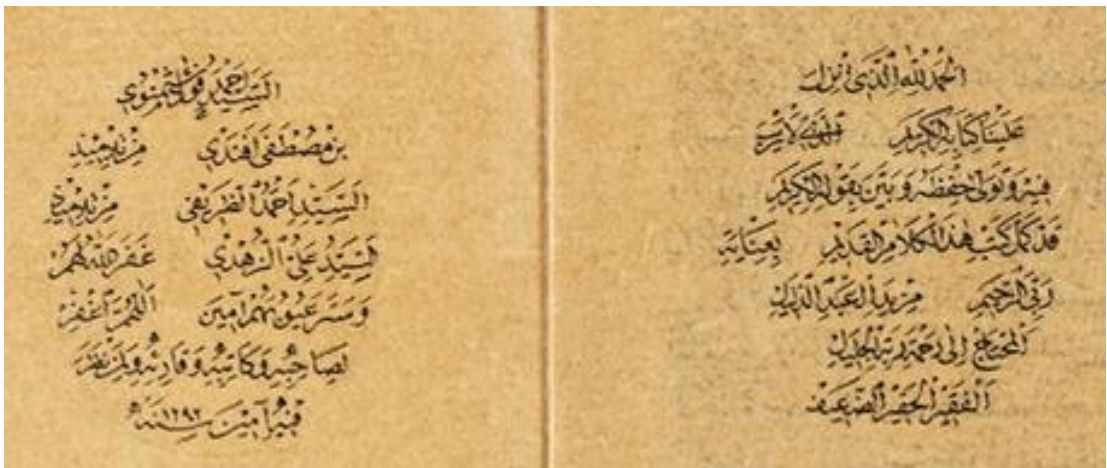 الحمد لله الذي انزل
علينا كتابه الكريم
فيه وتولى حفظه وبين بقوله الكريم
قد كمل كتب هذا الكلام القديم بعناية
ربي الرحيم من يد العبد الذليل
المحتاج الى رحمة ربه الجليل
الفقير الحقير الضعيف
السيد احمد
بن مصطفى افندي من تلاميذ
السيد احمد الظريفي من تلاميذ
السيد علي الزهدي غفر الله لهم
وستر عيوبهم آمين اللهم اغفر
لصاحبه وكاتبه وقارئه ولمن نظر
فيه آمين سنة ١٢٩٢